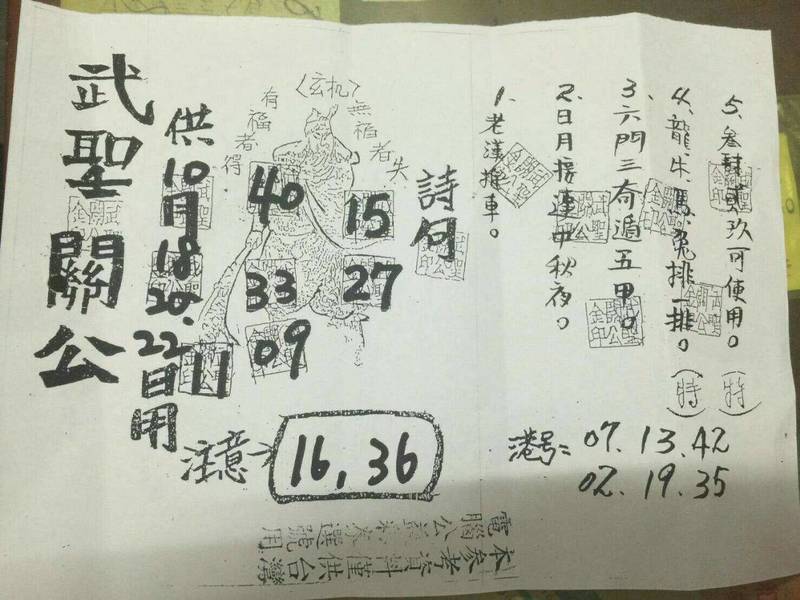 武聖關公
供10月18.20.22日用
〈玄机〉
有福者得
無福者失
40
15
33
27
09
11
注意
16,36
詩句
1、老漢推車。
2、日月接連中秋夜。
3、六門三奇遁五甲。
4、龍牛馬兔排一排。(特)
5、叁對貳玖可使用。(特)
港号: 07.13.42
02.19.35
本參考資料僅供台灣
電腦公益彩券選號用